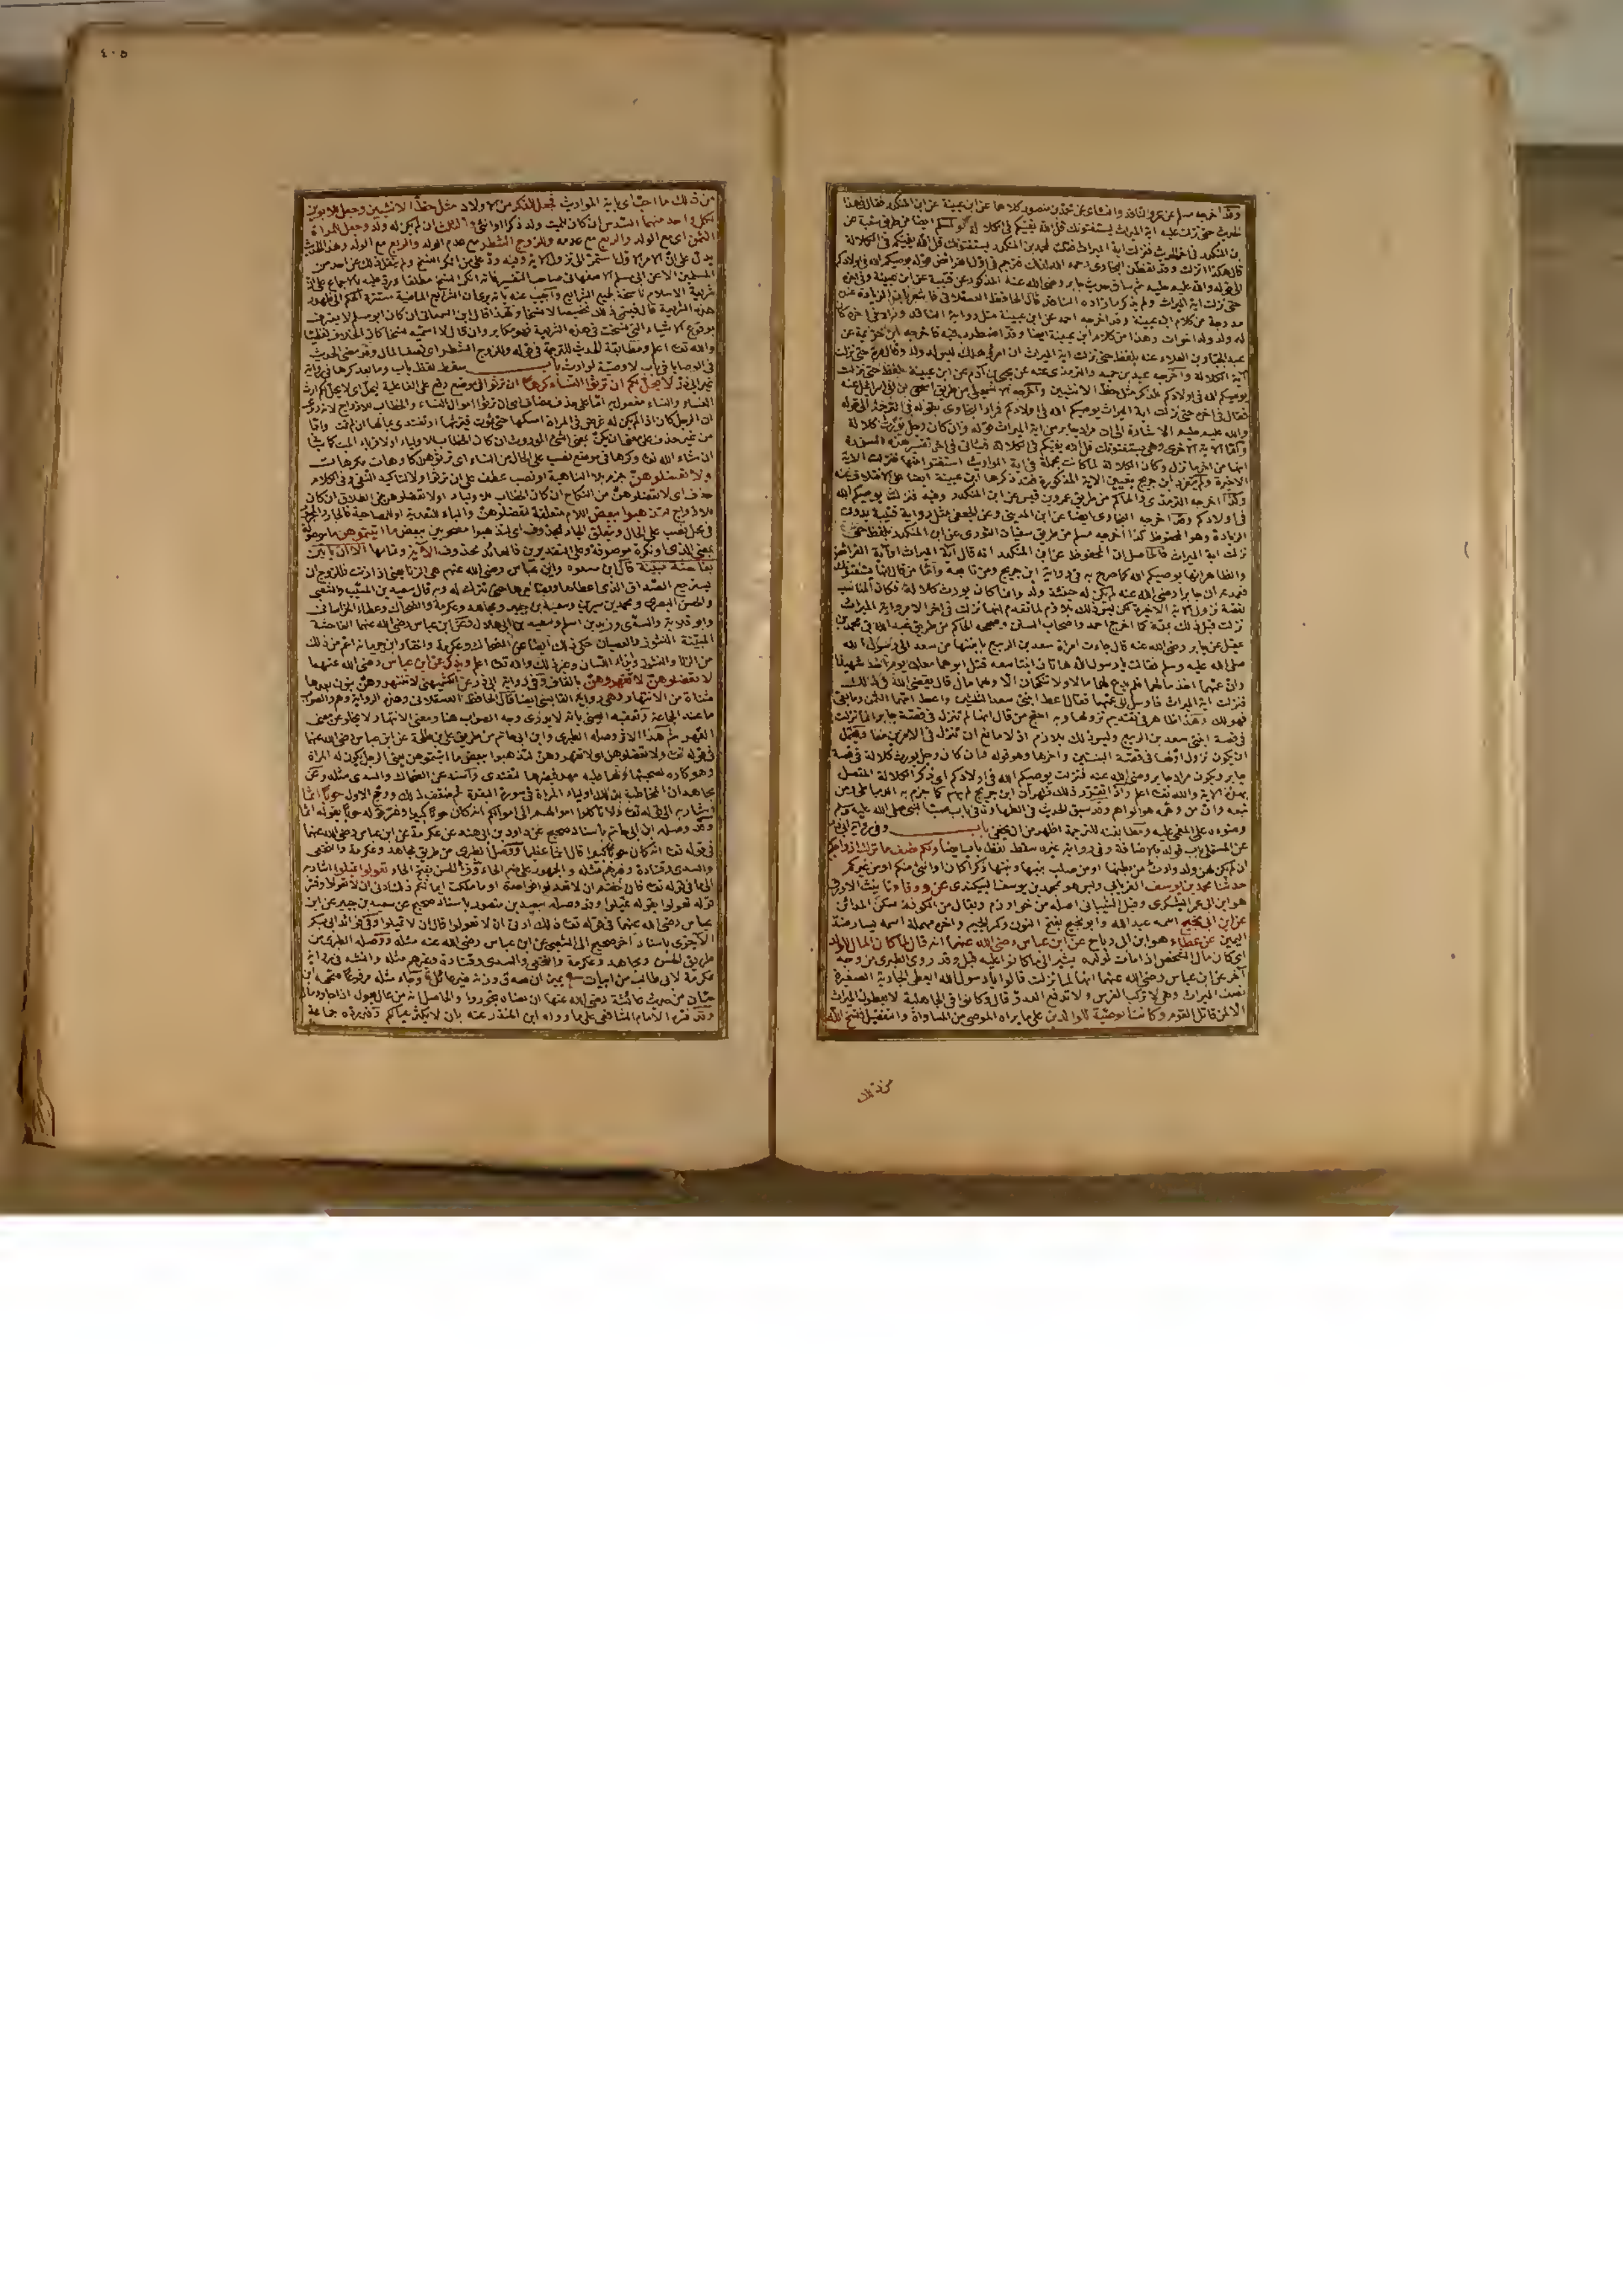 وقد اخرجه مسلم عن عمرو الناقد عن ابن عيينة عن ابن المنكدر فقال في هذا
الحديث حتى نزلت عليه اية الميراث يستفتونك قل الله يفتيكم في الكلالة
من طريق شعبة عن
بن المنكدر فنزلت اية الميراث فقلت لمحمد بن المنكدر يستفتونك قل الله يفتيكم في الكلالة
قال هكذا انزلت وقد البخاري قوله يوصيكم الله في اولادكم
حتى نزلت اية الميراث ولم يذكر ما زاده الناقد قال الحافظ العسقلاني
مدرجة من كلام ابن عيينة وقد اخرجه احمد عن ابن عيينة مثل رواية الناقد وزاد في اخره كان
له ولد وله اخوات وهذا من كلام ابن عيينة ايضا وقد اضطرب فيه فاخرجه ابن خزيمة عن
عبد الجبار بن العلاء عنه بلفظ حتى نزلت اية الميراث ان امرؤ هلك ليس له ولد وقال مرة حتى نزلت
آية الكلالة واخرجه عبد بن حميد والترمذي عنه عن يحيى بن آدم عن ابن عيينة بلفظ حتى نزلت
يوصيكم الله في اولادكم للذكر مثل حظ الانثيين واخرجه الاسمعيلي من طريق اسحق بن ابي اسرائيل عنه
فقال في اخره حتى نزلت اية الميراث يوصيكم الله في اولادكم فمراد البخاري بقوله في الترجمة الى قوله
والله عليم حليم الاشارة الى ان مراد جابر من اية الميراث قوله وان كان رجل يورث كلالة
واما الاية الاخرى وهي يستفتونك قل الله يفتيكم في الكلالة فسيأتي في اخر تفسير هذه السورة
انها من اخر ما نزل وكان الكلالة لما كانت مجملة في اية المواريث استفتوا عنها فنزلت الاية
الاخيرة ولم ينفرد ابن جريج بتعيين الاية المذكورة فقد ذكرها ابن عيينة ايضا على الاختلاف عنه
وكذا اخرجه الترمذي والحاكم من طريق عمرو بن قيس عن ابن المنكدر وفيه فنزلت يوصيكم الله
في اولادكم وقد اخرجه البخاري ايضا عن ابن المديني وعن الجعفي مثل رواية قتيبة بدون
الزيادة وهو المحفوظ كذا اخرجه مسلم من طريق سفيان الثوري عن ابن المنكدر بلفظ حتى
نزلت اية الميراث فالحاصل ان المحفوظ عن ابن المنكدر انه قال آية الميراث او آية الفرائض
والظاهر انها يوصيكم الله كما صرح به في رواية ابن جريج ومن تابعه واما من قال انها يستفتونك
فعمدته ان جابرا رضي الله عنه لم يكن له حينئذ ولد وانما كان يورث كلالة فكان المناسب
لقصة نزول الاية الاخيرة لكن ليس ذلك بلازم
نزلت قبل ذلك بمدة كما اخرج احمد واصحاب السنن وصححه الحاكم من طريق عبد الله بن محمد بن
عقيل عن جابر رضي الله عنه قال جاءت امرأة سعد بن الربيع بابنتيها من سعد الى رسول الله
صلى الله عليه وسلم فقالت يا رسول الله هاتان ابنتا سعد قتل ابوهما معك يوم احد شهيدا
وان عمهما اخذ مالهما فلم يدع لهما مالا ولا تنكحان الا ولهما مال قال يقضي الله في ذلك
فنزلت اية الميراث فارسل الى عمهما فقال اعط ابنتي سعد الثلثين واعط امهما الثمن وما بقي
فهو لك وهذا ظاهر في تقديم نزولها وبه احتج من قال انها لم تنزل في قصة جابر انما نزلت
في قصة ابنتي سعد بن الربيع وليس ذلك بلازم اذ لا مانع ان تنزل في الامرين معا ويحتمل
ان يكون نزول اولها في قصة البنتين واخرها وهو قوله وان كان رجل يورث كلالة في قصة
جابر ويكون مراد جابر رضي الله عنه فنزلت يوصيكم الله في اولادكم اي ذكر الكلالة المتصل
بهذه الاية والله تعالى اعلم واذا تقرر ذلك ظهر ان ابن جريج لم يهم كما جزم به الدمياطي ومن
تبعه وان من وهمه هو الواهم وقد سبق الحديث في الطهارة في باب صب النبي صلى الله عليه وسلم
وضوءه على المغمى عليه ومطابقته للترجمة اظهر من ان يخفى باب وفي رواية ابي ذر
عن المستملي باب قوله بالاضافة وفي رواية غيره سقط لفظ باب ايضا ولكم نصف ما ترك ازواجكم
ان لم يكن لهن ولد وارث من بطنها او من صلب بنيها او بني بنيها ذكرا كان او انثى منكم او من غيركم
حدثنا محمد بن يوسف الفريابي وليس هو محمد بن يوسف البيكندي عن ورقاء
هو ابن ابي عمر اليشكري وقيل الشيباني اصله من خوارزم ويقال من الكوفة سكن المدائن
عن ابن ابي نجيح اسمه عبد الله وابو نجيح بفتح النون وكسر الجيم واخره مهملة اسمه يسار ضد
اليمين عن عطاء هو ابن ابي رباح عن ابن عباس رضي الله عنهما انه قال كان المال للولد
اي كان مال الشخص اذا مات لولده يشير الى ما كانوا عليه قبل وقد روى الطبري من وجه
آخر عن ابن عباس رضي الله عنهما انها لما نزلت قالوا يا رسول الله انعطي الجارية الصغيرة
نصف الميراث وهي لا تركب الفرس ولا تدفع العدو قال وكانوا في الجاهلية لا يعطون الميراث
الا لمن قاتل القوم وكانت الوصية للوالدين على ما يراه الموصي من المساواة والتفضيل فنسخ الله
من ذلك
٤٠٥
من ذلك ما احب اي باية المواريث فجعل للذكر من الاولاد مثل حظ الانثيين وجعل للابوين
لكل واحد منهما السدس ان كان للميت ولد ذكرا او انثى والثلث ان لم يكن له ولد وجعل للمرأة
الثمن اي مع الولد والربع مع عدمه وللزوج الشطر مع عدم الولد والربع مع الولد وهذا الحديث
يدل على ان الامر الاول استمر الى نزول الاية وفيه رد على من انكر النسخ ولم ينقل ذلك عن احد من
المسلمين الا عن ابي مسلم الاصفهاني صاحب التفسير فانه انكر النسخ مطلقا ورد عليه بالاجماع على ان
شريعة الاسلام ناسخة لجميع الشرائع واجيب عنه بانه يرى ان الشرائع الماضية مستقرة الحكم الى ظهور
هذه الشريعة قال فيسمى ذلك تخصيصا لا نسخا ولهذا قال ابن السمعاني ان كان ابو مسلم لا يعترف
بوقوع الاشياء التي نسخت في هذه الشريعة فهو مكابر وان قال لا اسميه نسخا كان الخلاف لفظيا
والله تعالى اعلم ومطابقة الحديث للترجمة في قوله وللزوج الشطر اي نصف المال وقد مضى الحديث
في الوصايا في باب لا وصية لوارث باب سقط لفظ باب وما بعد كرها في رواية
غير ابي ذر لا يحل لكم ان ترثوا النساء كرها ان ترثوا في موضع رفع على الفاعلية ليحل اي لا يحل لكم ارث
النساء والنساء مفعول به اما على حذف مضاف اي ان ترثوا اموال النساء والخطاب للازواج لانه روي
ان الرجل كان اذا لم يكن له غرض في المرأة امسكها حتى تموت فيرثها او تفتدي بمالها ان لم تمت واما
من غير حذف على معنى ان يكن بمعنى الشئ الموروث ان كان الخطاب للاولياء او لاقرباء الميت كما سيأتي
ان شاء الله تعالى وكرها في موضع نصب على الحال من النساء اي ترثوهن كارهات او مكرهات
ولا تعضلوهن جزم بلا الناهية او نصب عطف على ان ترثوا ولا لتأكيد النفي وفي الكلام
حذف اي لا تعضلوهن من النكاح ان كان الخطاب للاولياء او لا تعضلوهن من الطلاق ان كان
للازواج لتذهبوا ببعض اللام متعلقة بتعضلوهن والباء للتعدية او للمصاحبة فالجار والمجرور
في محل نصب على الحال ويتعلق الجار بمحذوف اي لتذهبوا مصحوبين ببعض ما آتيتموهن ما موصولة
بمعنى الذي او نكرة موصوفة وعلى التقديرين فالعائد محذوف الا ان يأتين
بفاحشة مبينة قال ابن مسعود وابن عباس رضي الله عنهم هي الزنا يعني اذا زنت فللزوج ان
يسترجع الصداق الذي اعطاها ويضاجرها حتى تتركه له وبه قال سعيد بن المسيب والشعبي
والحسن البصري ومحمد بن سيرين وسعيد بن جبير ومجاهد وعكرمة والضحاك وعطاء الخراساني
وابو قلابة والسدي وزيد بن اسلم وسعيد بن ابي هلال وعن ابن عباس رضي الله عنهما الفاحشة
المبينة النشوز والعصيان حكي ذلك ايضا عن الضحاك وعكرمة واختار ابن جرير انه اعم من ذلك
من الزنا والنشوز وبذاء اللسان وغير ذلك والله تعالى اعلم ويذكر عن ابن عباس رضي الله عنهما
لا تعضلوهن لا تقهروهن بالقاف وفي رواية ابي ذر عن الكشميهني لا تنتهروهن بنون بعدها
مثناة من الانتهار وهي رواية القابسي ايضا قال الحافظ العسقلاني وهذه الرواية وهم والصواب
ما عند الجماعة وتعقبه العيني بانه لا يدري وجه الصواب هنا ومعنى الانتهار لا يخلو عن معنى
القهر ثم هذا الاثر وصله الطبري وابن ابي حاتم من طريق علي بن طلحة عن ابن عباس رضي الله عنهما
في قوله تعالى ولا تعضلوهن لا تقهروهن لتذهبوا ببعض ما آتيتموهن يعني الرجل يكون له المرأة
وهو كاره لصحبتها ولها عليه مهر فيضرها لتفتدي واسند عن الضحاك والسدي مثله وعن
مجاهد ان المخاطب بذلك اولياء المرأة في سورة البقرة ثم ضعف ذلك ورجح الاول حوبا اثما
اشار به الى قوله تعالى ولا تأكلوا اموالهم الى اموالكم انه كان حوبا كبيرا وفسر قوله حوبا بقوله اثما
وقد وصله ابن ابي حاتم باسناد صحيح عن داود بن ابي هند عن عكرمة عن ابن عباس رضي الله عنهما
في قوله تعالى انه كان حوبا كبيرا قال اثما عظيما ووصل الطبري من طريق مجاهد وعكرمة والنخعي
والسدي وقتادة وغيرهم مثله والجمهور على ضم الحاء وقرأ الحسن بفتح الحاء تعولوا تميلوا اشار به
الى ما في قوله تعالى فان خفتم ان لا تعدلوا فواحدة او ما ملكت ايمانكم ذلك ادنى ان لا تعولوا وفسر
قوله تعولوا بقوله تميلوا وقد وصله سعيد بن منصور باسناد صحيح عن سعيد بن جبير عن ابن
عباس رضي الله عنهما في قوله تعالى ذلك ادنى ان لا تعولوا قال ان لا تميلوا وفي فوائد ابي بكر
الآجري باسناد آخر صحيح الى الشعبي عن ابن عباس رضي الله عنه مثله ووصله الطبري من
طريق الحسن ومجاهد وعكرمة والنخعي والسدي وقتادة وغيرهم مثله وانشد في رواية
عكرمة لابي طالب من ابيات بميزان صدق وزنه غير عائل وجاء مثله مرفوعا صححه ابن
حبان من حديث عائشة رضي الله عنها ان معناه تجوروا والحاصل انه من عال يعول اذا جار ومال
وقد فسره الامام الشافعي على ما رواه ابن المنذر عنه بان لا يكثر عيالكم وقد رده جماعة